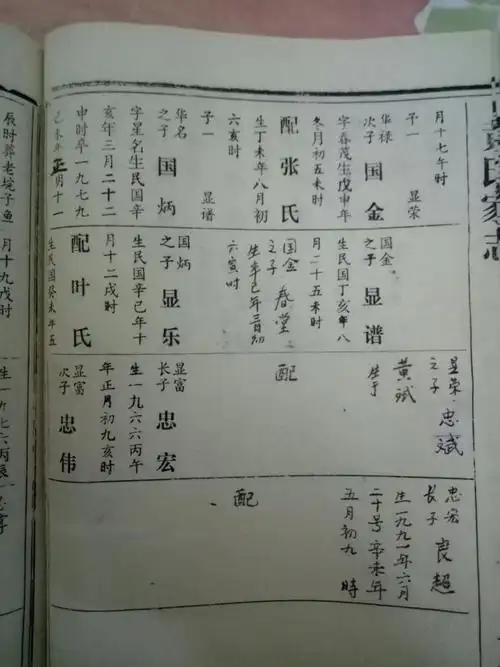 黄氏家志
月十七午时
子一 显荣
华禄
次子 国金
字春茂生戊申年
冬月初五未时
配张氏
生丁未年八月初
六亥时
子一 显谱
华名
之子 国炳
字星名生民国辛
亥年三月二十二
申时卒一九七九
己未年正月十一
国金
之子 显谱
生民国丁亥年八
月二十五未时
国金
之子 春堂
生辛巳年
六寅时
国炳
之子 显乐
生民国辛巳年十
月十二戌时
配叶氏
生民国癸未年五
显荣
之子 忠斌
黄斌
生于
配
显富
长子 忠宏
生一九六六丙午
年正月初九亥时
显富
次子 忠伟
忠宏
长子 良超
生一九九一年六月
二十号辛未年
五月初九 時
配
辰时葬老垅子鱼
月十九戌时
生一九七六丙辰